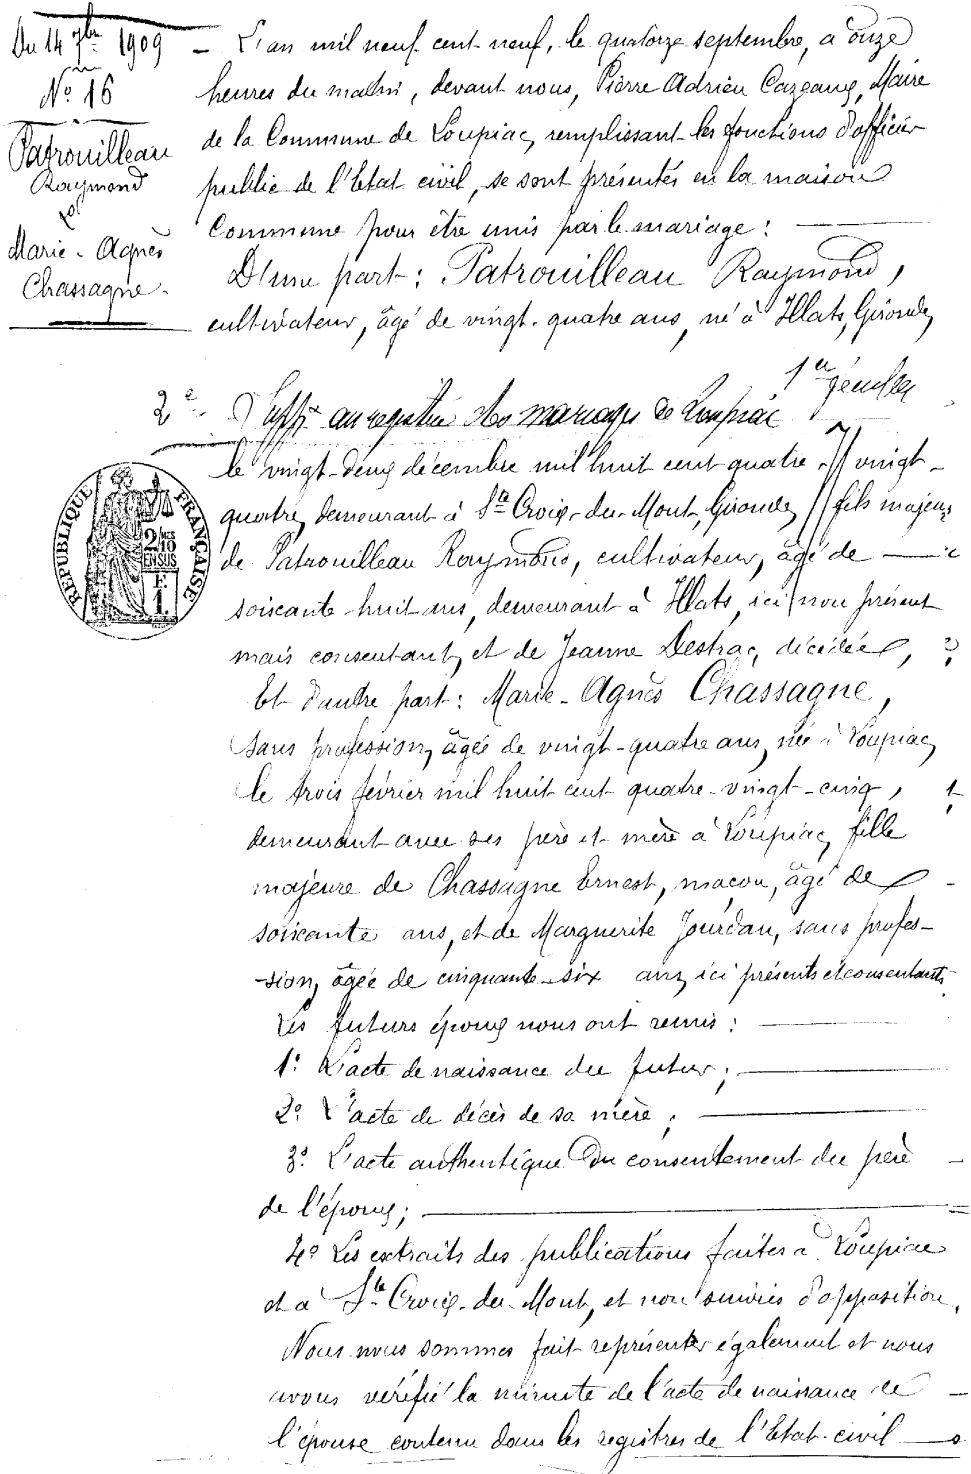 Du 14 7bre 1909
No 16
Patrouilleau
Raymond
et
Marie-Agnès
Chassagne.
L'an mil neuf cent neuf, le quatorze septembre, à onze
heures du matin, devant nous, Pierre Adrien Cazeaux, Maire
de la Commune de Loupiac, remplissant les fonctions d'officier
public de l'Etat civil, se sont présentés en la maison
Commune pour être unis par le mariage :
D'une part : Patrouilleau Raymond,
cultivateur, âgé de vingt-quatre ans, né à Illats, Gironde,
1er feuillet
2e Suppt au registre des mariages de Loupiac
REPUBLIQUE FRANÇAISE
2/10
EN SUS
F.
1.
le vingt-deux décembre mil huit cent quatre-vingt-
quatre, demeurant à Ste Croix-du-Mont, Gironde, fils majeur
de Patrouilleau Raymond, cultivateur, âgé de
soixante-huit ans, demeurant à Illats, ici non présent
mais consentant, et de Jeanne Destrac, décédée,
Et d'autre part : Marie-Agnès Chassagne,
sans profession, âgée de vingt-quatre ans, née à Loupiac,
le trois février mil huit cent quatre-vingt-cinq,
demeurant avec ses père et mère à Loupiac, fille
majeure de Chassagne Ernest, maçon, âgé de
soixante ans, et de Marguerite Jourdan, sans profes-
-sion, âgée de cinquante-six ans, ici présents et consentants.
Les futurs époux nous ont remis :
1o L'acte de naissance du futur ;
2o L'acte de décès de sa mère ;
3o L'acte authentique du consentement du père
de l'époux ;
4o Les extraits des publications faites à Loupiac
et à Ste Croix-du-Mont, et non suivies d'opposition.
Nous nous sommes fait représenter également et nous
avons vérifié la minute de l'acte de naissance de
l'épouse contenu dans les registres de l'Etat-civil